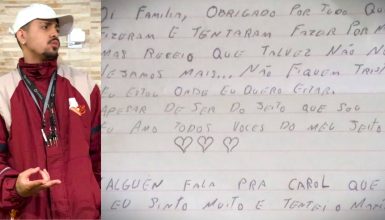 Oi Familia, Obrigado por tudo que
fizeram e tentaram fazer por m
mas receio que talvez não no
vejamos mais... Não fiquem tris
eu estou onde eu quero estar.
Apesar de ser do jeito que sou
eu amo todos voces do meu jeito
Alguen fala pra Carol que
eu sinto muito e tentei o